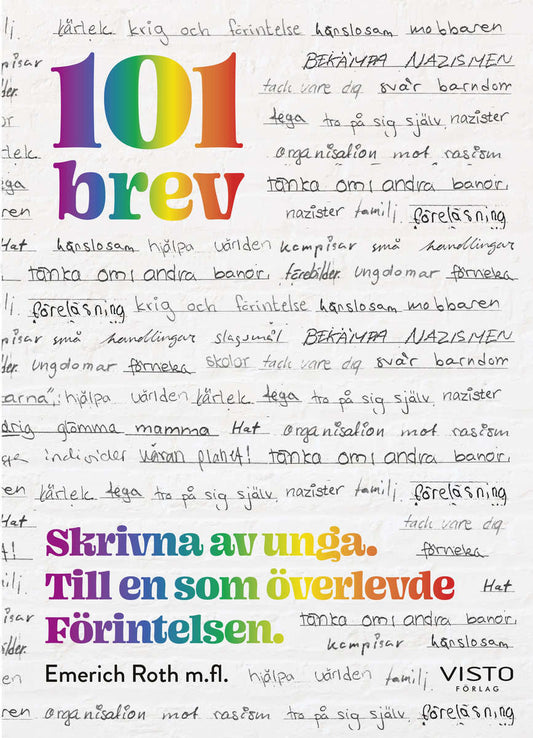 lj. kärlek krig och förintelse hänslosam mobbaren
mpisar BEKÄMPA NAZISMEN
101
brev
lder. tack vare dig svår barndom
or tega tro på sig själv, nazister
rlek organisation mot rasism
ga tänka om i andra banor,
ren nazister familj föreläsning
Hat hänslosam hjälpa världen kompisar små handlingar
tänka om i andra banor, förebilder. Ungdomar förneka
lj. föreläsning krig och förintelse hänslosam mobbaren
pisar små handlingar slagsmål BEKÄMPA NAZISMEN
der. Ungdomar förneka skolor tack vare dig svår barndom
arna", hjälpa världen kärlek tega tro på sig själv, nazister
drig glömma mamma Hat organisation mot rasism
individer våran planet! tänka om i andra banor,
en kärlek tega tro på sig själv, nazister familj föreläsning
Hat tack vare dig
Skrivna av unga.
t! förneka
Till en som överlevde
ilj. Hat
Förintelsen.
isar tänka om i andra banor,
ilder. kompisar hänslosam
Emerich Roth m.fl.
en hjälpa världen familj.
VISTO
FÖRLAG
ren organisation mot rasism små handlingar, föreläsning